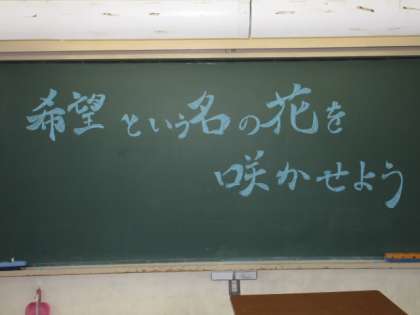 希望という名の花を
咲かせよう